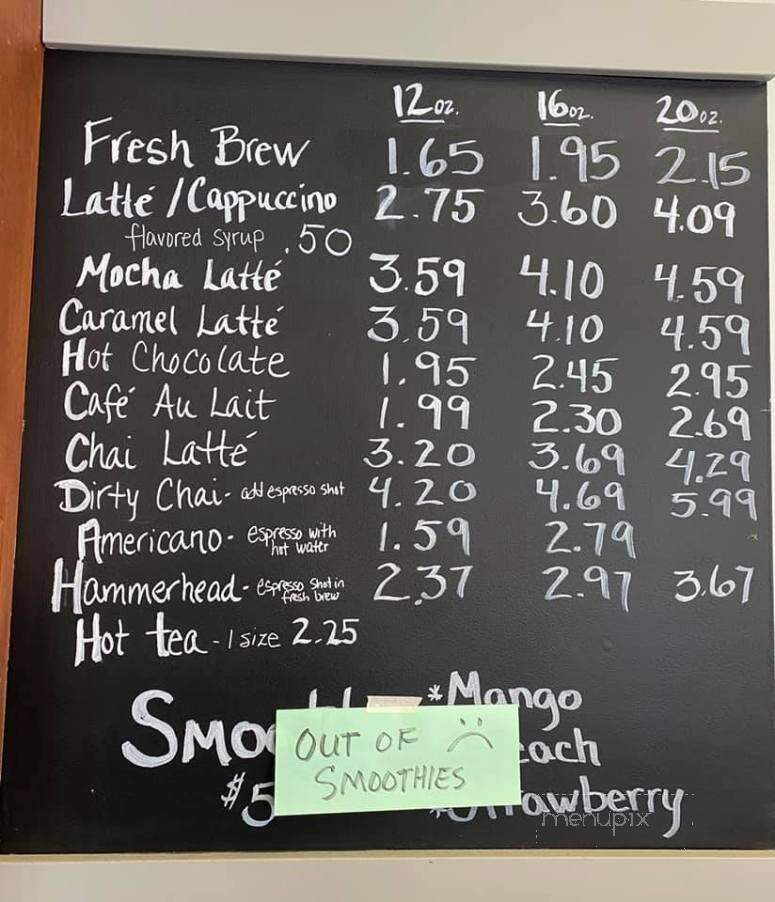 12oz. 16oz. 20oz.
Fresh Brew 1.65 1.95 2.15
Latté / Cappuccino 2.75 3.60 4.09
flavored syrup .50
Mocha Latté 3.59 4.10 4.59
Caramel Latté 3.59 4.10 4.59
Hot Chocolate 1.95 2.45 2.95
Café Au Lait 1.99 2.30 2.69
Chai Latté 3.20 3.69 4.29
Dirty Chai - add espresso shot 4.20 4.69 5.99
Americano - espresso with hot water 1.59 2.79
Hammerhead - espresso shot in fresh brew 2.37 2.97 3.67
Hot tea - 1 size 2.25
*Mango
OUT OF
SMOOTHIES
$5
menupix